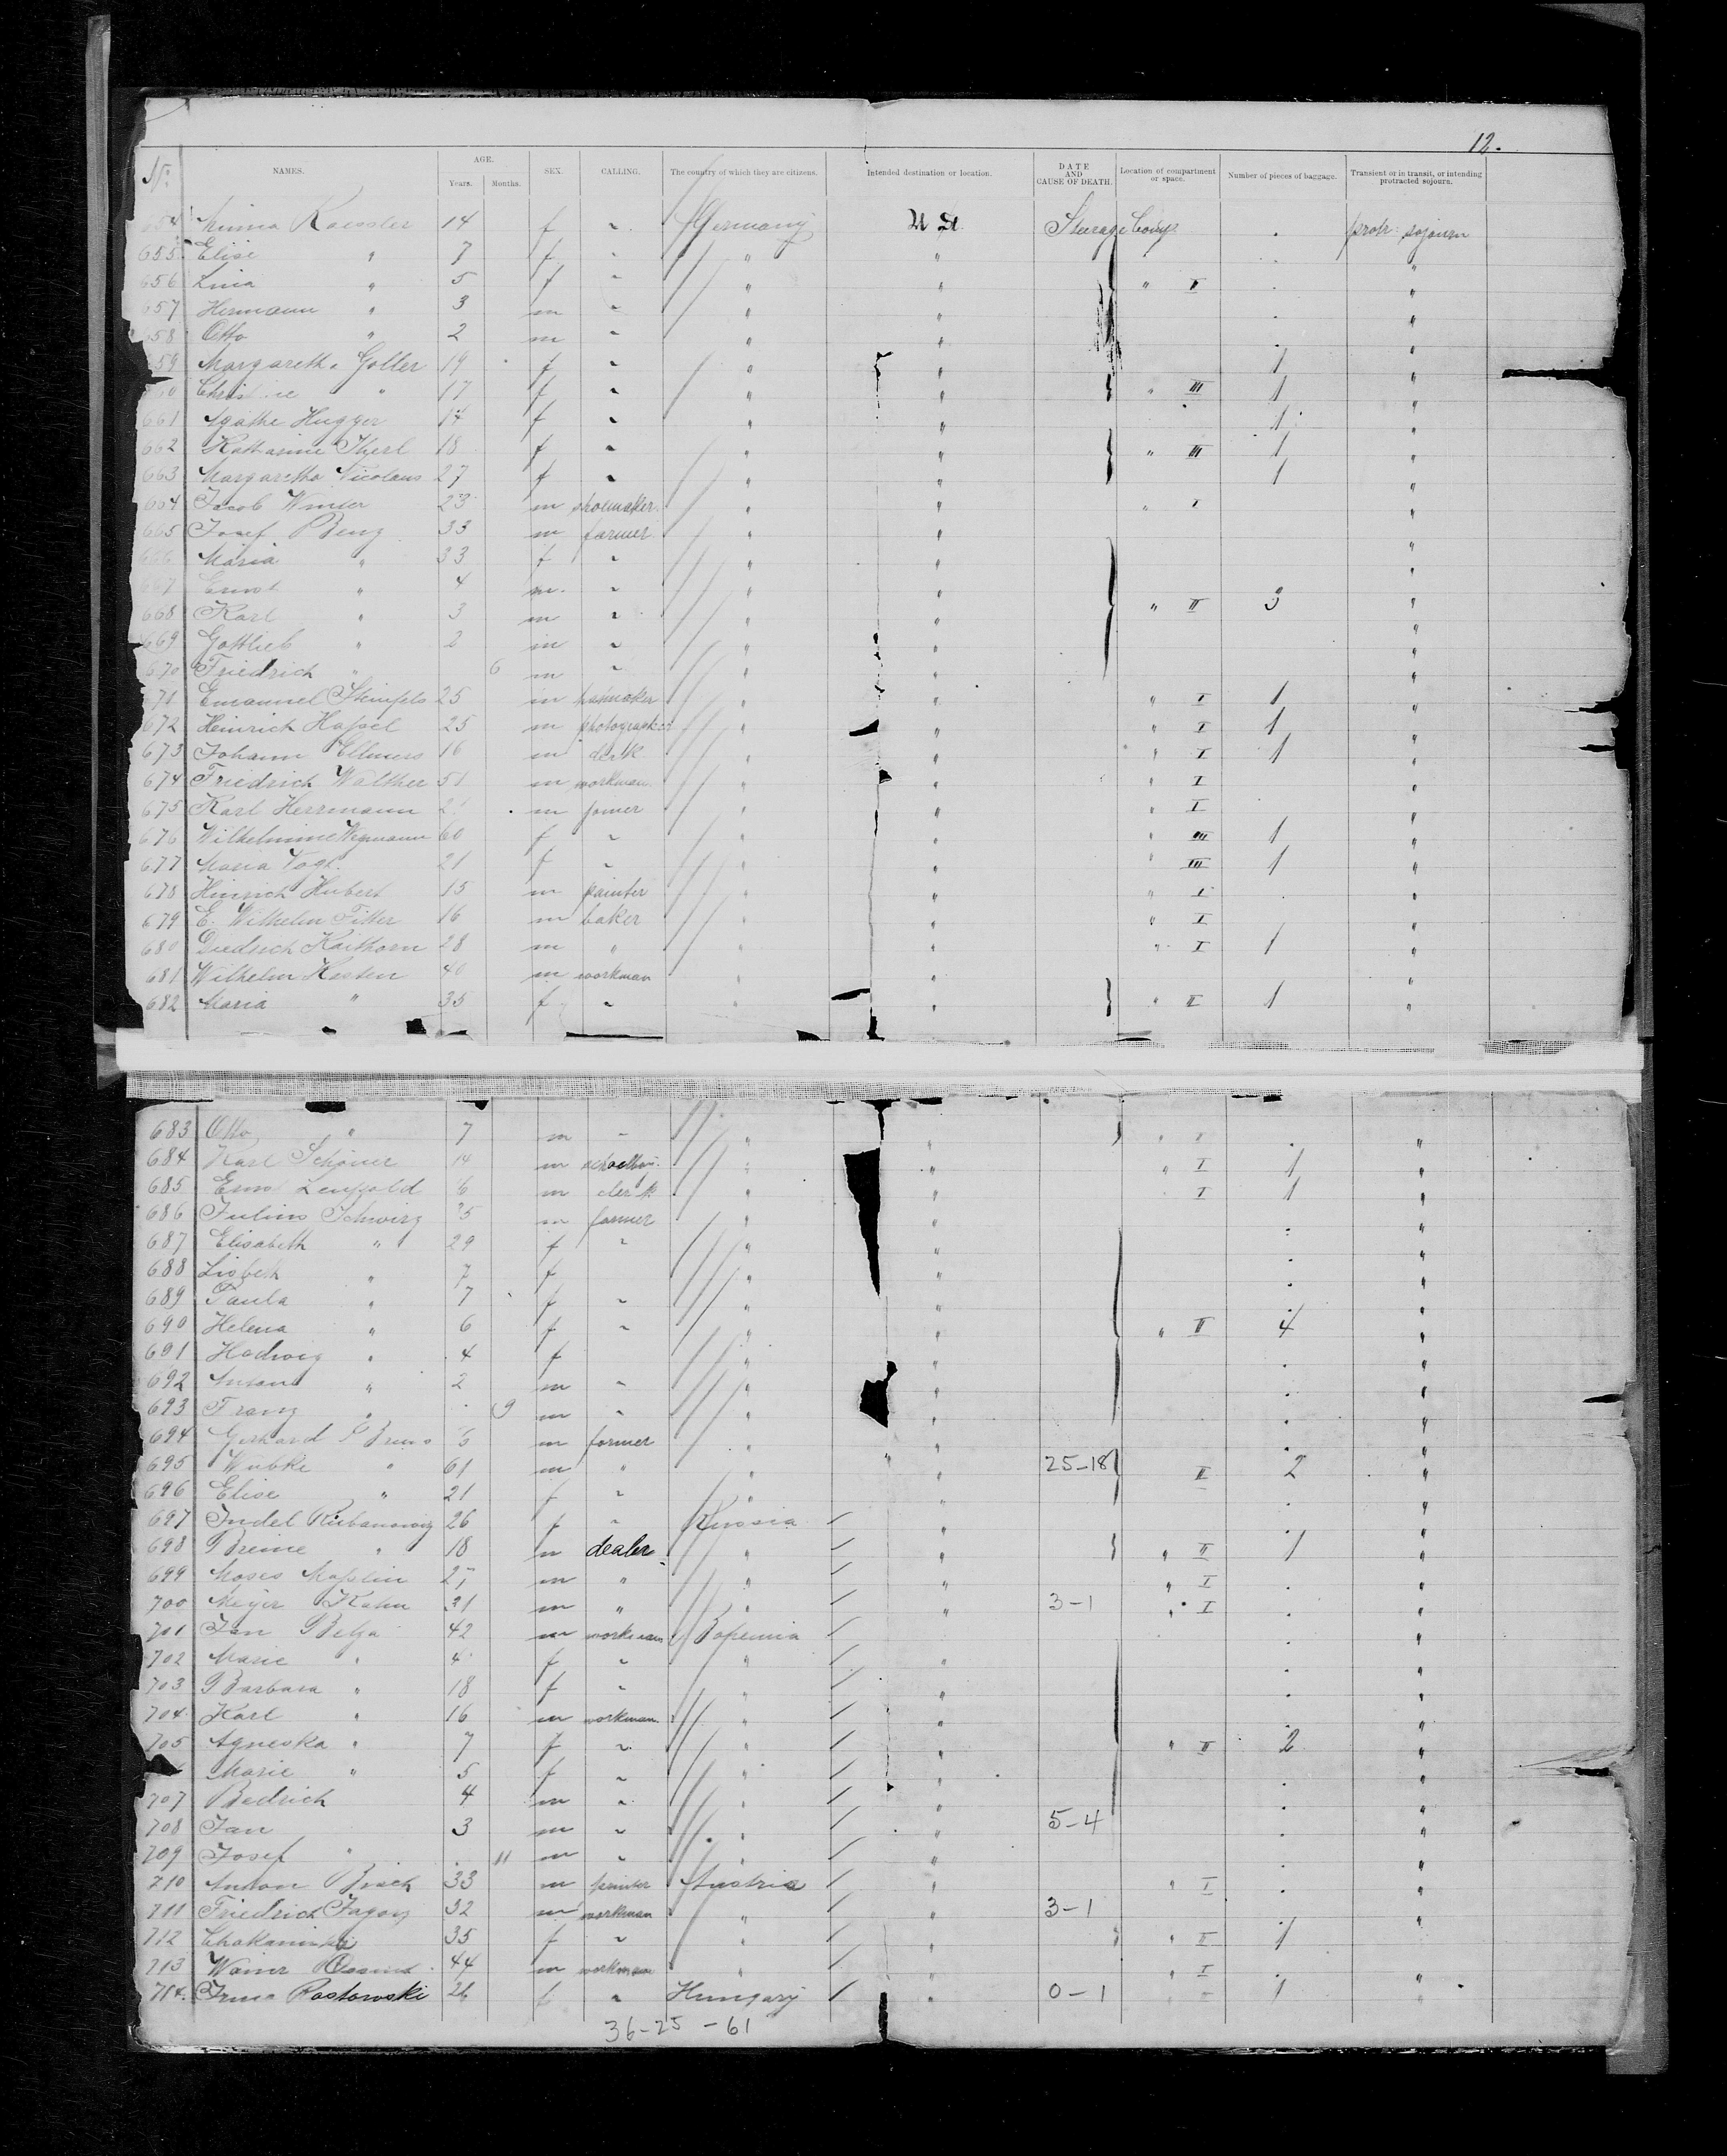 12.
No. NAMES. AGE. Years. Months. SEX. CALLING. The country of which they are citizens. Intended destination or location. DATE AND CAUSE OF DEATH. Location of compartment or space. Number of pieces of baggage. Transient or in transit, or intending protracted sojourn.
654 Minna Kaessler 14 f " Germany U St Steerage Comp. protr. sojourn
655 Elise " 7 f " " " "
656 Lina " 5 f " " " " II "
657 Hermann " 3 m " " " "
658 Otto " 2 m " " " "
659 Margaretha Goller 19 f " " " 1 "
660 Christine " 17 f " " " " III 1 "
661 Agathe Hugger 14 f " " " 1 "
662 Katharine Iherl 18 f " " " " III 1 "
663 Margaretha Nicolaus 27 f " " " 1 "
664 Jacob Winter 23 m shoemaker " " " I "
665 Josef Benz 33 m farmer " " "
666 Maria " 33 f " " " "
667 Ernst " 4 m " " " "
668 Karl " 3 m " " " " II 3 "
669 Gottlieb " 2 m " " " "
670 Friedrich " 6 m " " " "
671 Emanuel Steinfels 25 m " " " I 1 "
672 Heinrich Hassel 25 m photographer " " " I 1 "
673 Johann Ellmers 16 m clerk " " " I 1 "
674 Friedrich Walther 51 m workman " " " I "
675 Karl Herrmann m joiner " " " I "
676 Wilhelmine Wegmann 60 f " " " " III 1 "
677 Maria Vogt 21 f " " " " III 1 "
678 Hinrich Hubert 15 m painter " " " I "
679 E. Wilhelm Fitter 16 m baker " " " I "
680 Diedrich Kaithorn 28 m " " " " I 1 "
681 Wilhelm Kesten 40 m workman " " "
682 Maria " 35 f " " " " II 1 "
683 Otto " 7 m " " " " I "
684 Karl Schöner 14 m schoolboy " " " I 1 "
685 Ernst Leupold 6 m clerk " " I 1 "
686 Julius Schwirz 35 m farmer " " "
687 Elisabeth " 29 f " " " "
688 Lisbeth " 7 f " " "
689 Paula " 7 f " " " "
690 Helena " 6 f " " " " II 4 "
691 Hadwig " 4 f " " "
692 Anton " 2 m " " " "
693 Franz " 9 m " " " "
694 Gerhard Bruns m farmer " " "
695 Wubke " 61 m " " " 25-18 II 2 "
696 Elise " 21 f " " " "
697 Indel Rubanowiz 26 f " Russia " "
698 Breine " 18 m dealer " " " II 1 "
699 Moses 27 m " " " " I "
700 Meyer Kahn 31 m " " " 3-1 " I "
701 Jan Belza 42 m workman Bohemia "
702 Marie " 4 f " " " "
703 Barbara " 18 f " " " "
704 Karl " 16 m workman " " "
705 Agneska " 7 f " " " " II 2 "
Marie " 5 f " " " "
707 Bedrich 4 m " " " "
708 Jan 3 m " " " 5-4 "
709 Josef " 11 m " " " "
710 Anton 33 m printer Austria " " I "
711 Friedrich 32 m workman " " 3-1 "
712 35 f " " " " II 1
713 44 m workman " " " I "
714. Irma Rostowski 26 f " Hungary " 0-1 1 "
36-25-61